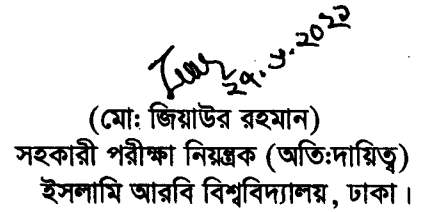 (মো: জিয়াউর রহমান)
সহকারী পরীক্ষা নিয়ন্ত্রক (অতি:দায়িত্ব)
ইসলামি আরবি বিশ্ববিদ্যালয়, ঢাকা।